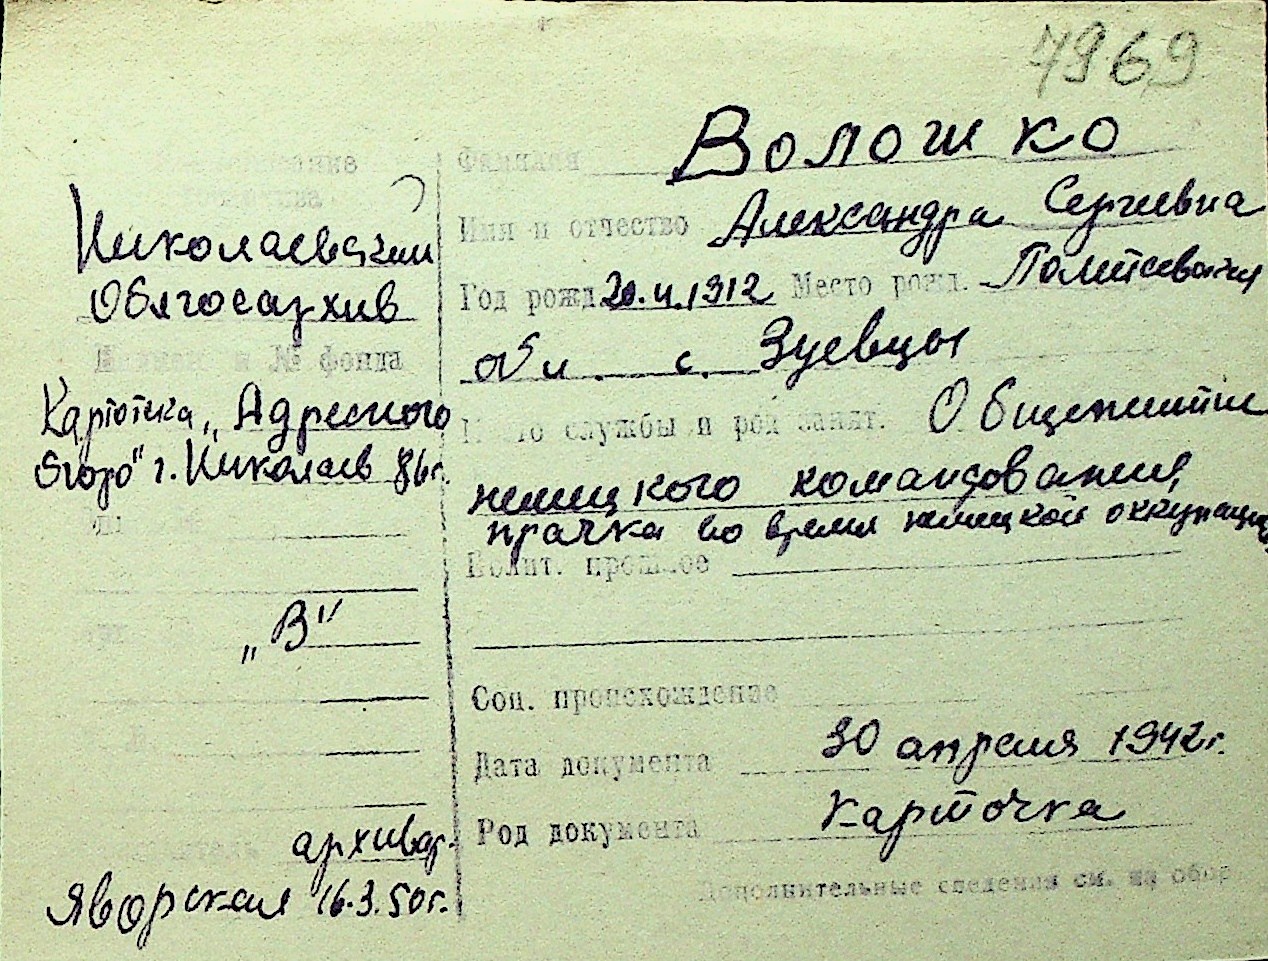 7969
Фамилия Волошко
Имя и отчество Александра Сергиевна
Год рожд. 20.4.1912 Место рожд.
обл. с. Зуевцы
службы и род занят. Общежитие
немецкого командования,
прачка во время немецкой оккупации
Полит. прошлое
Соц. происхождение
Дата документа 30 апреля 1942 г.
Род документа Карточка
Дополнительные сведения см. на обор
Николаевский
Облгосархив
и № фонда
Картотека „Адресного
бюро" г. Николаев
„В"
архивар.
Яворская 16.3.50 г.